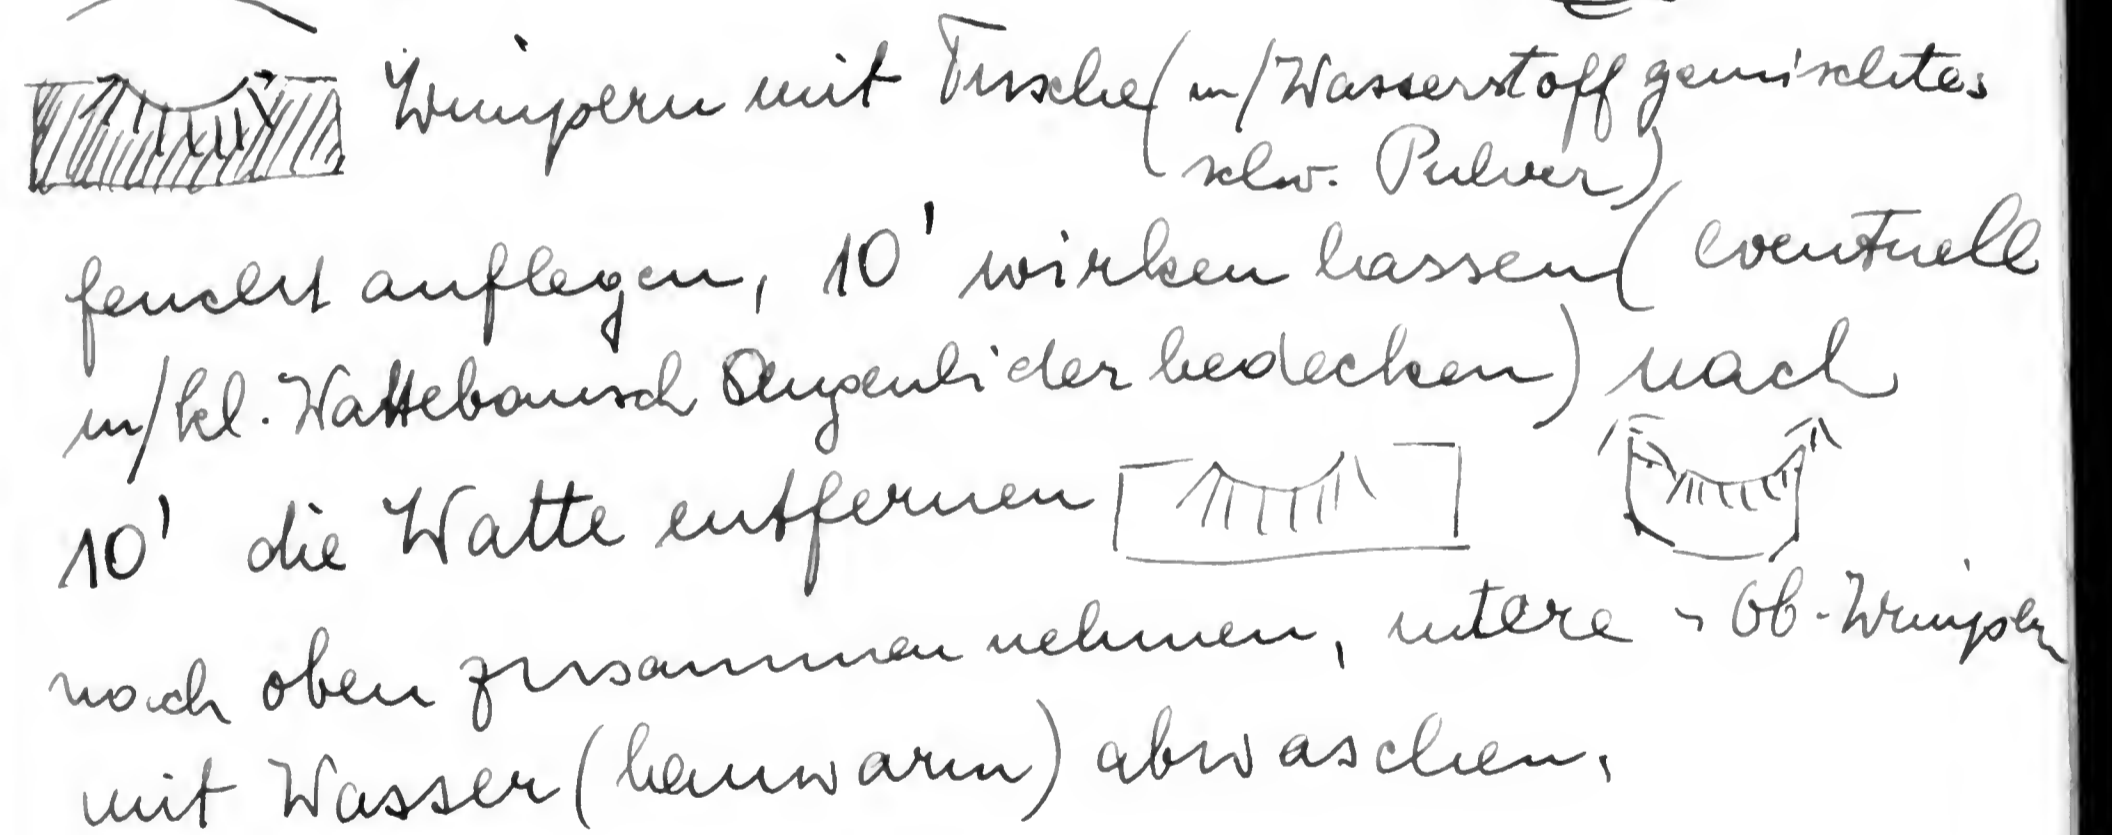 Wimpern mit Tusche (m/Wasserstoff gemischtes
schw. Pulver)
feucht auflegen, 10' wirken lassen (eventuell
m/kl. Wattebausch Augenlider bedecken) nach
10' die Watte entfernen
nach oben zusammen nehmen, untere ob-Wimpern
mit Wasser (lauwarm) abwaschen.